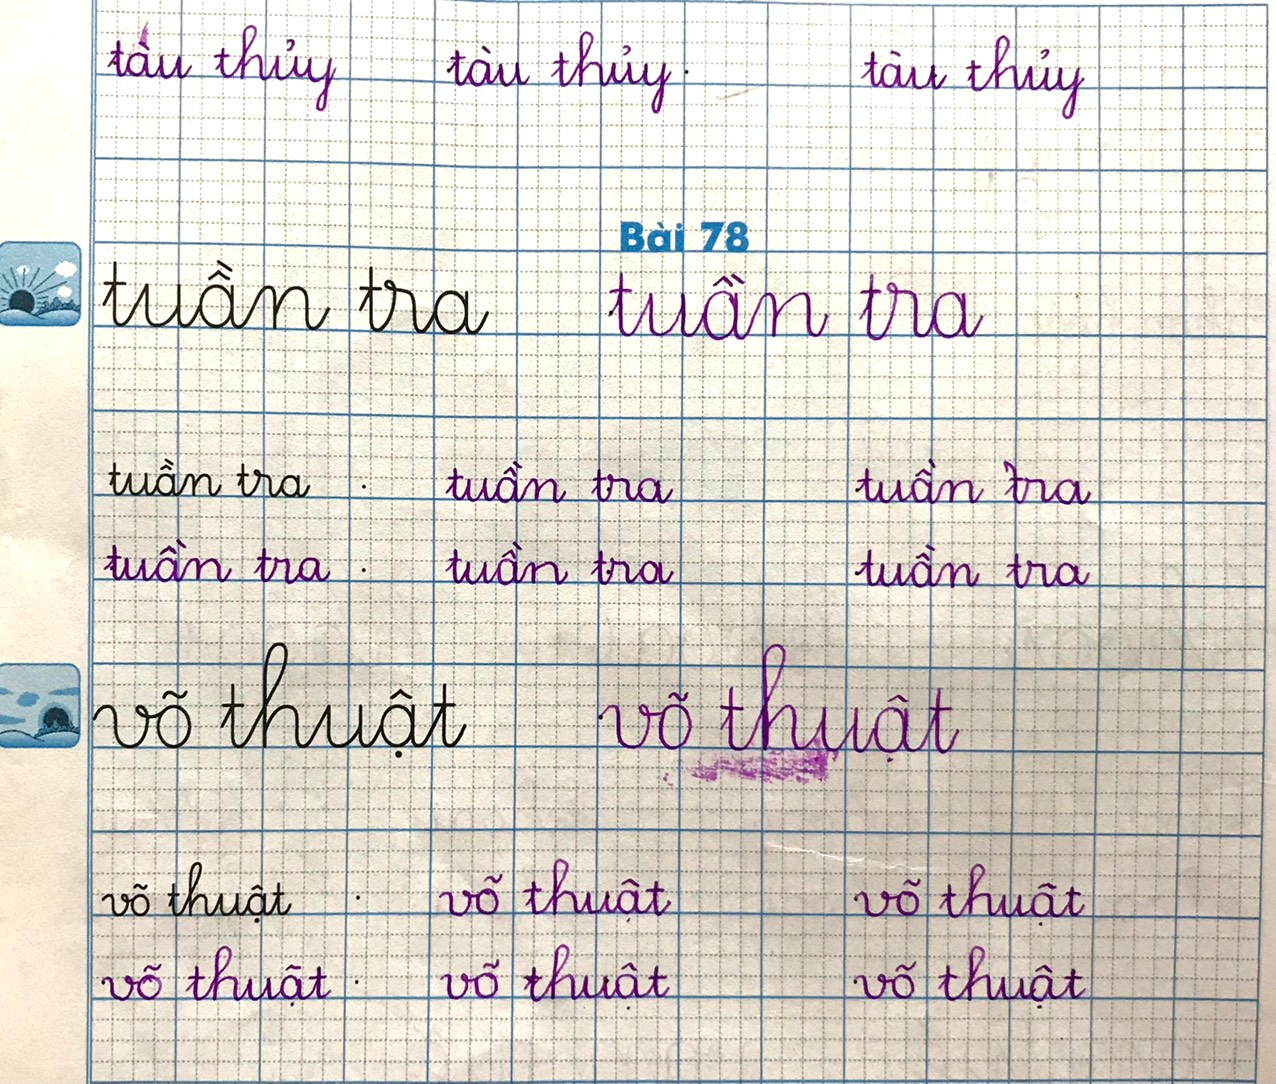 tàu thủy tàu thủy. tàu thủy
Bài 78
tuần tra tuần tra
tuần tra . tuần tra tuần tra
tuần tra . tuần tra tuần tra
võ thuật võ thuật
võ thuật . võ thuật võ thuật
võ thuật . võ thuật võ thuật